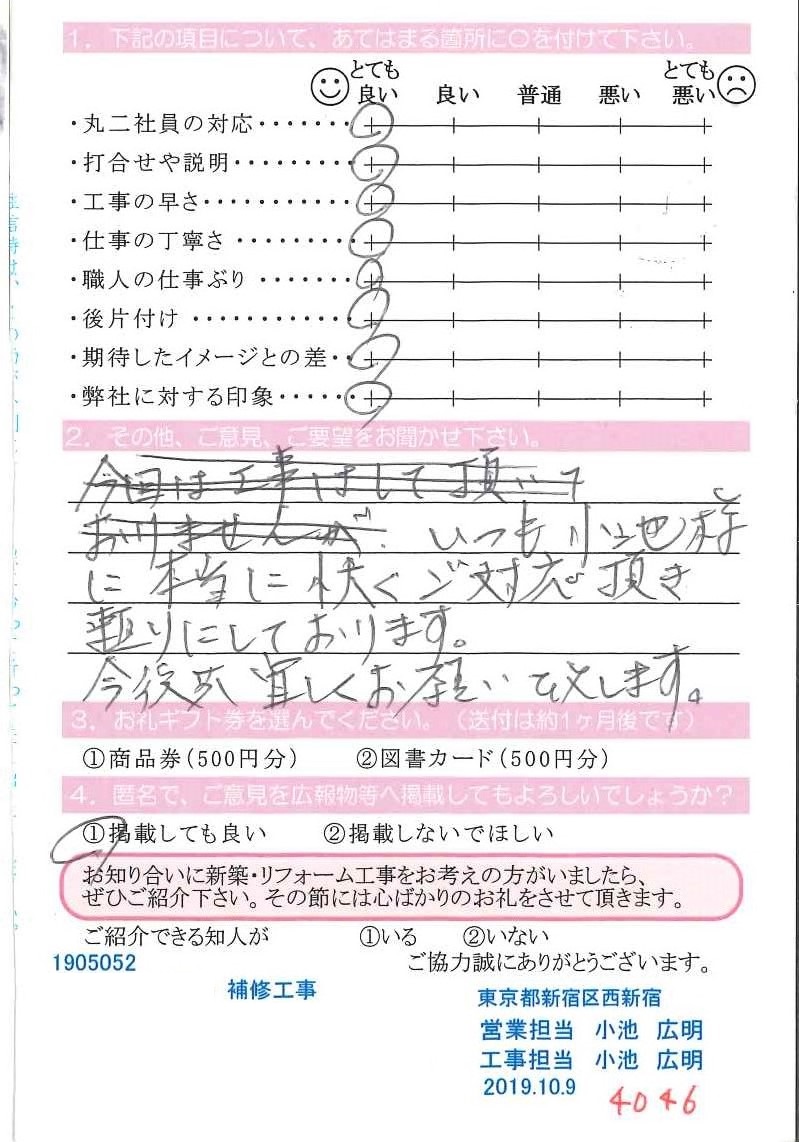 1. 下記の項目について、あてはまる箇所に○を付けて下さい。
とても良い 良い 普通 悪い とても悪い
・丸二社員の対応・・・・・・・
・打合せや説明・・・・・・・・・
・工事の早さ・・・・・・・・・・・
・仕事の丁寧さ・・・・・・・・・
・職人の仕事ぶり・・・・・・・
・後片付け・・・・・・・・・・・・
・期待したイメージとの差・・
・弊社に対する印象・・・・・・
2. その他、ご意見、ご要望をお聞かせ下さい。
今回は工事はして頂いて
おりませんが、いつも小池様
に本当に快くご対応頂き
頼りにしております。
今後共宜しくお願い致します。
3. お礼ギフト券を選んでください。(送付は約1ヶ月後です)
①商品券(500円分) ②図書カード(500円分)
4. 匿名で、ご意見を広報物等へ掲載してもよろしいでしょうか?
①掲載しても良い ②掲載しないでほしい
お知り合いに新築・リフォーム工事をお考えの方がいましたら、
ぜひご紹介下さい。その節には心ばかりのお礼をさせて頂きます。
ご紹介できる知人が ①いる ②いない
1905052 ご協力誠にありがとうございます。
補修工事 東京都新宿区西新宿
営業担当 小池 広明
工事担当 小池 広明
2019.10.9 4046